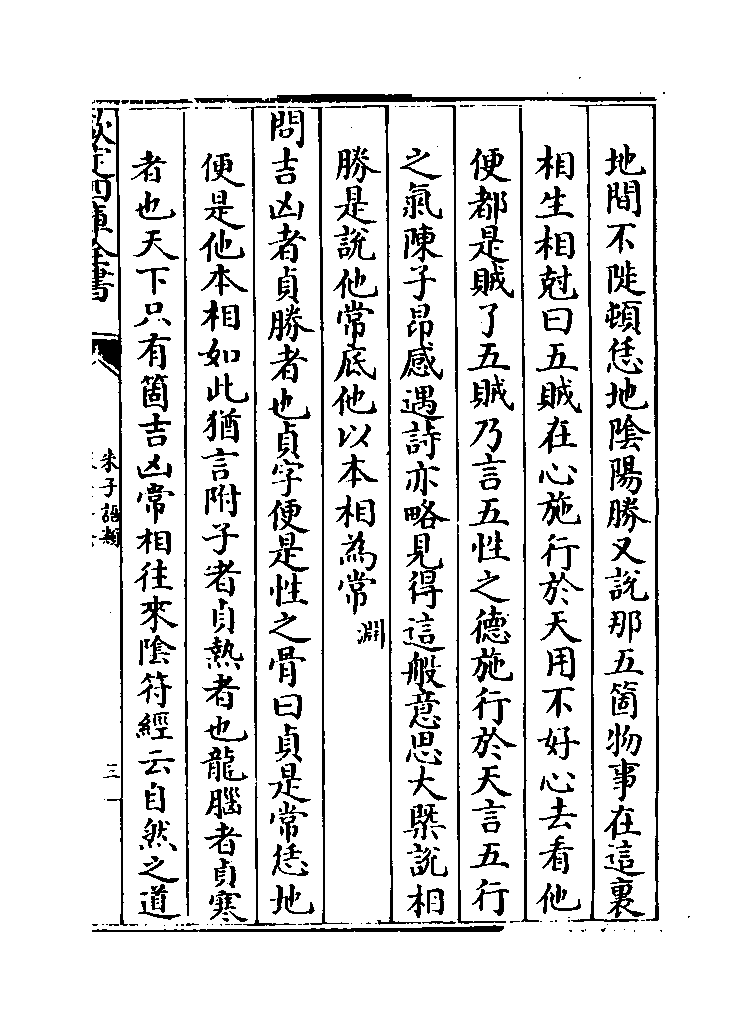 地間不陡頓恁地隂陽勝又說那五箇物事在這裏
相生相尅曰五賊在心施行於天用不好心去看他
便都是賊了五賊乃言五性之德施行於天言五行
之氣陳子昂感遇詩亦略見得這般意思大槩說相
勝是說他常底他以本相為常淵
問吉凶者貞勝者也貞字便是性之骨曰貞是常恁地
便是他本相如此猶言附子者貞熱者也龍腦者貞寒
者也天下只有箇吉凶常相往來隂符經云自然之道
欽定四庫全書
朱子語類
三